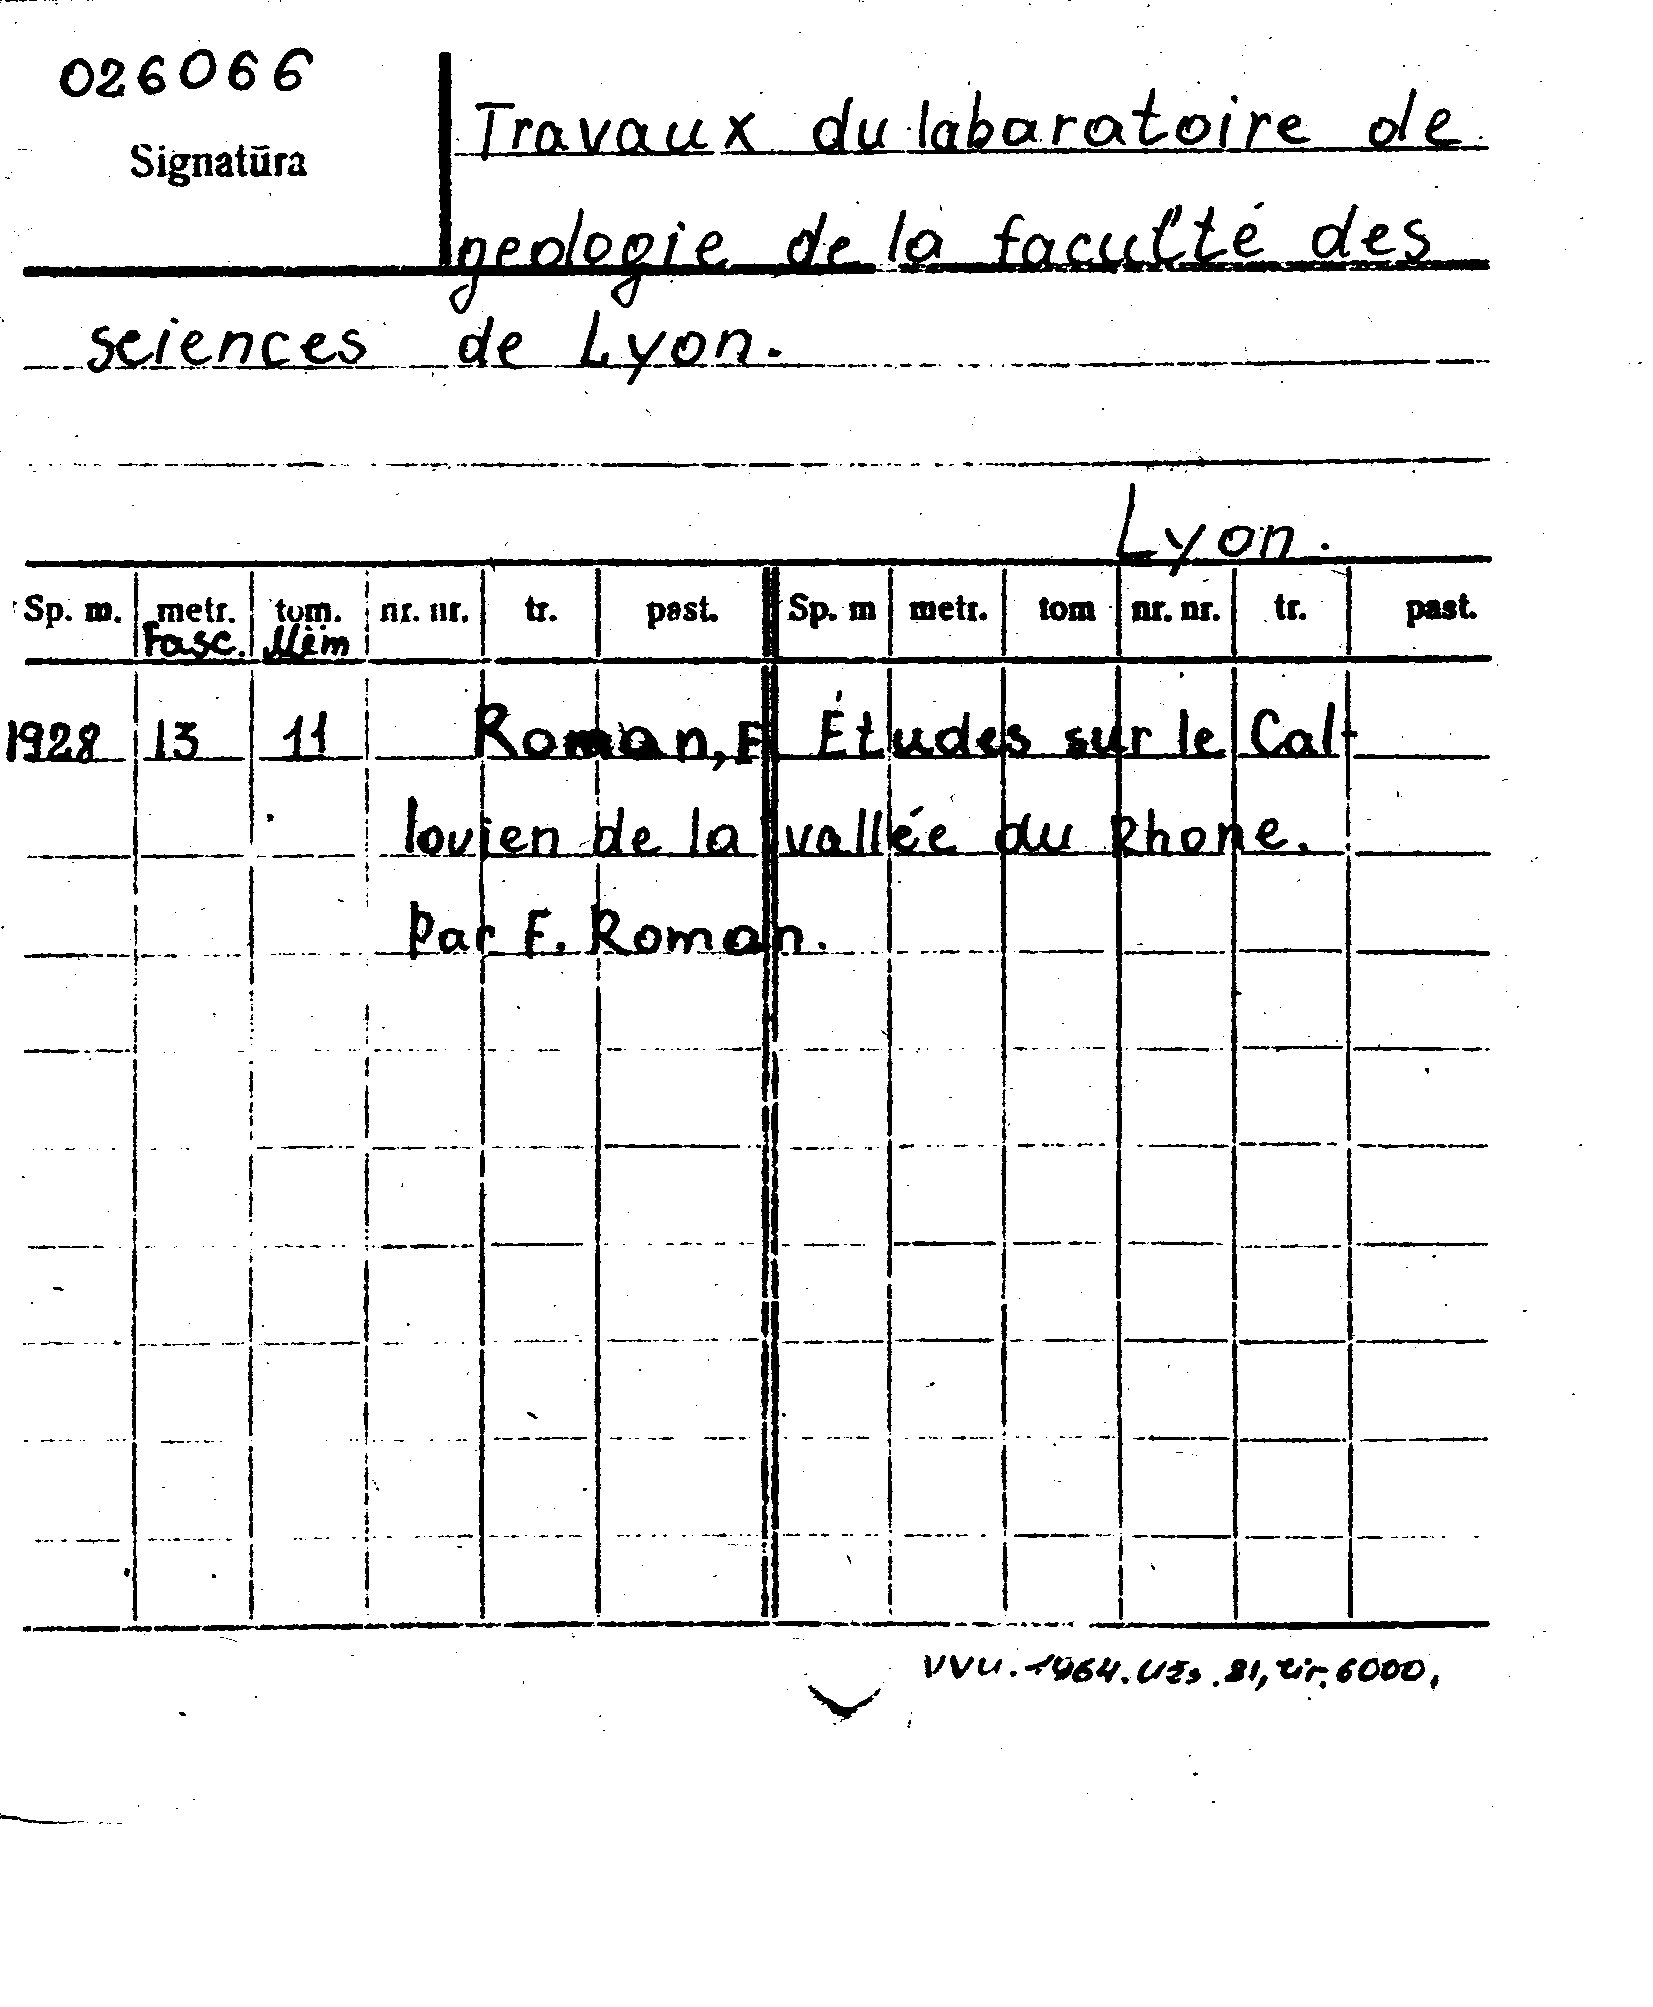 026066
Signatūra
Travaux du labaratoire de
geologie de la faculté des
sciences de Lyon.
Lyon.
Sp. m. metr. tom. nr. nr. tr. past. Sp. m metr. tom nr. nr. tr. past.
Fasc. Mém
1928 13 11 Roman, F Études sur le Cal-
lovien de la vallée du Rhone.
Par F. Roman.
VVU. 1964. Užs. 81, tir. 6000,